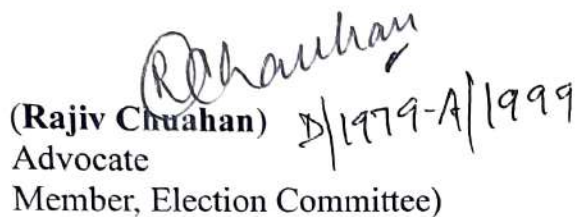 RChauhan
(Rajiv Chuahan) D/1979-A/1999
Advocate
Member, Election Committee)